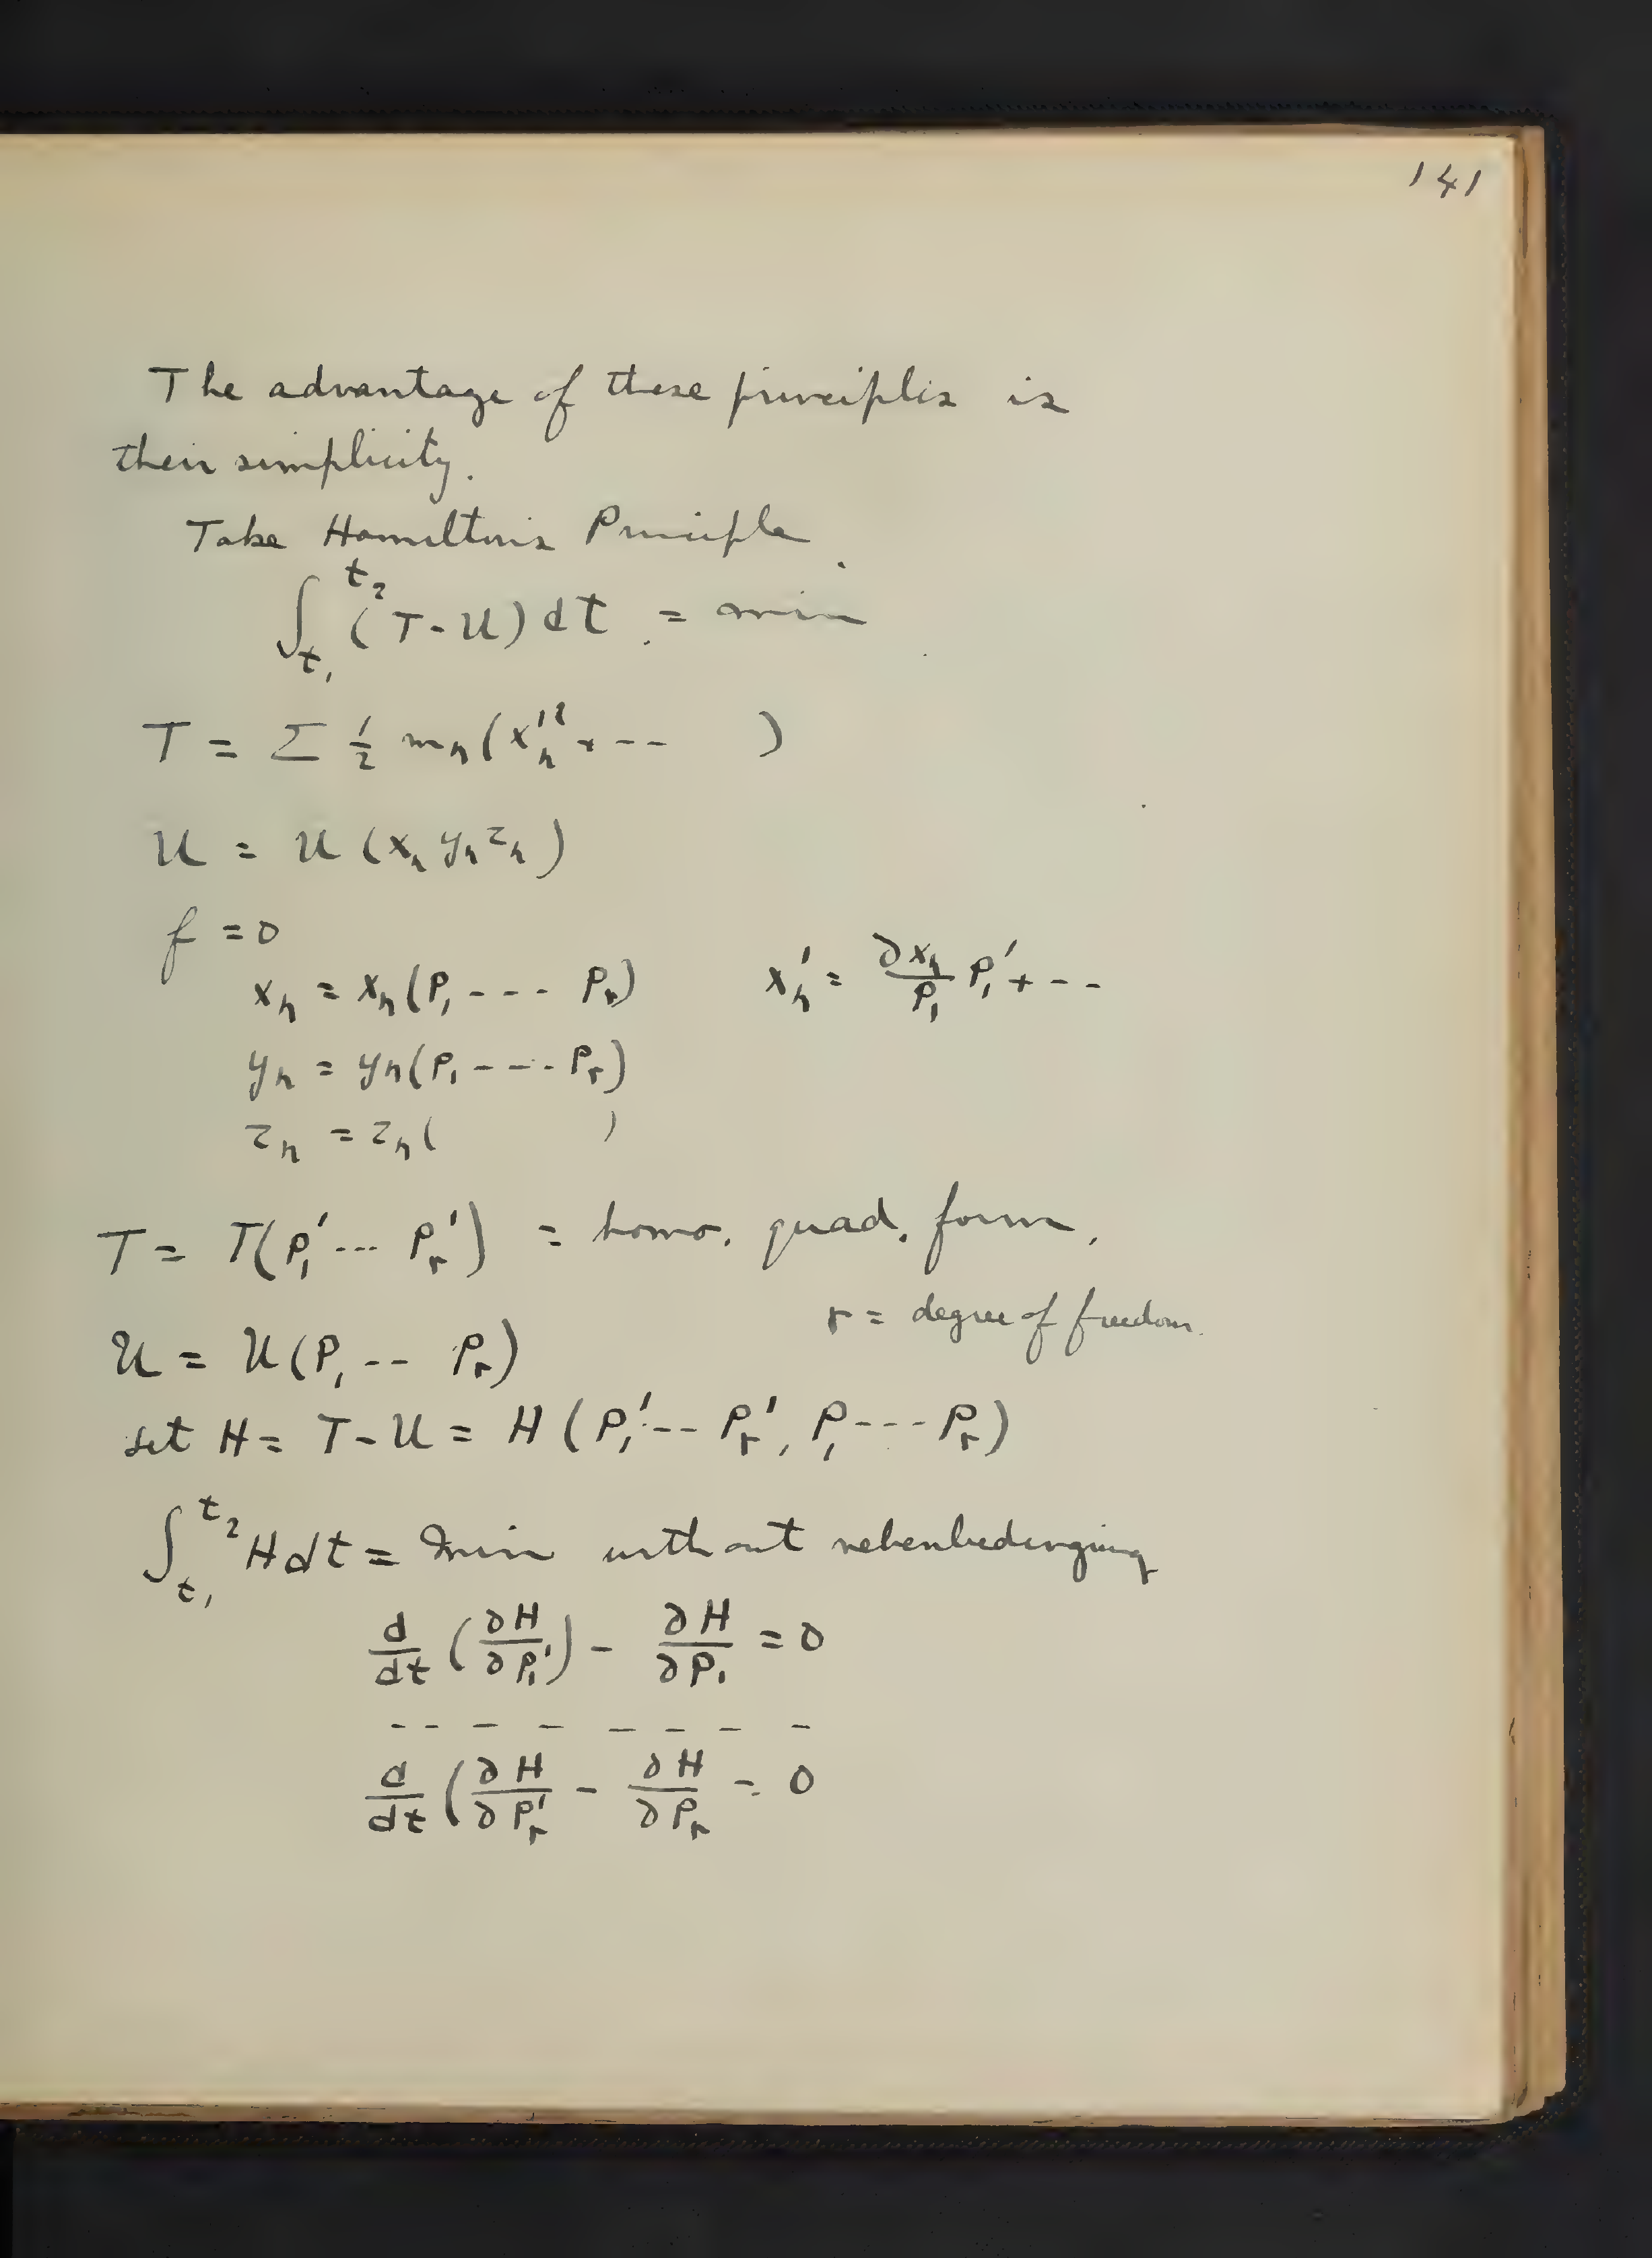 141
The advantage of these principles is
their simplicity.
Take Hamiltons Principle
∫_{t₁}^{t₂} (T - U) dt = min
T = Σ ½ m_h (x_h'² + -- )
U = U (x_h y_h z_h)
f = 0
x_h = x_h (p₁ --- p_r)    x_h' = ∂x_h/p₁ p₁' + --
y_h = y_h (p₁ --- p_r)
z_h = z_h (        )
T = T(p₁' --- p_r') = homo. quad. form.
r = degree of freedom.
U = U (p₁ -- p_r)
set H = T - U = H (p₁' -- p_r', p₁ --- p_r)
∫_{t₁}^{t₂} H dt = min without nebenbedingung
d/dt (∂H/∂p₁') - ∂H/∂p₁ = 0
-- - - - - - -
d/dt (∂H/∂p_r' - ∂H/∂p_r = 0